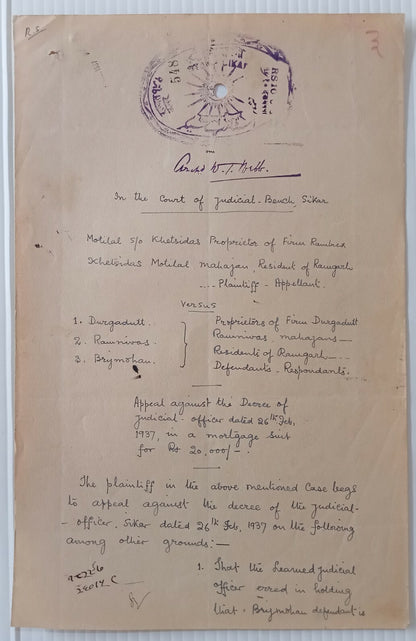 R.S.
548
SIKAR
In the Court of Judicial-Bench, Sikar
Motilal s/o Khetsidas Proprietor of Firm
Khetsidas Motilal mahajan, Resident of Ramgarh
.... Plaintiff - Appellant.
Versus
1. Durgadutt.
2. Ramniwas.
3. Brijmohan.
Proprietors of Firm Durgadutt
Ramniwas mahajans
Residents of Ramgarh
Defendants - Respondents.
Appeal against the Decree of
Judicial - officer dated 26th Feb,
1937, in a mortgage suit
for Rs 20,000/- .
The plaintiff in the above mentioned case begs
to appeal against the decree of the Judicial-
- officer, Sikar dated 26th Feb, 1937 on the following
among other grounds:—
1. That the Learned Judicial
officer erred in holding
that Brijmohan defendant is